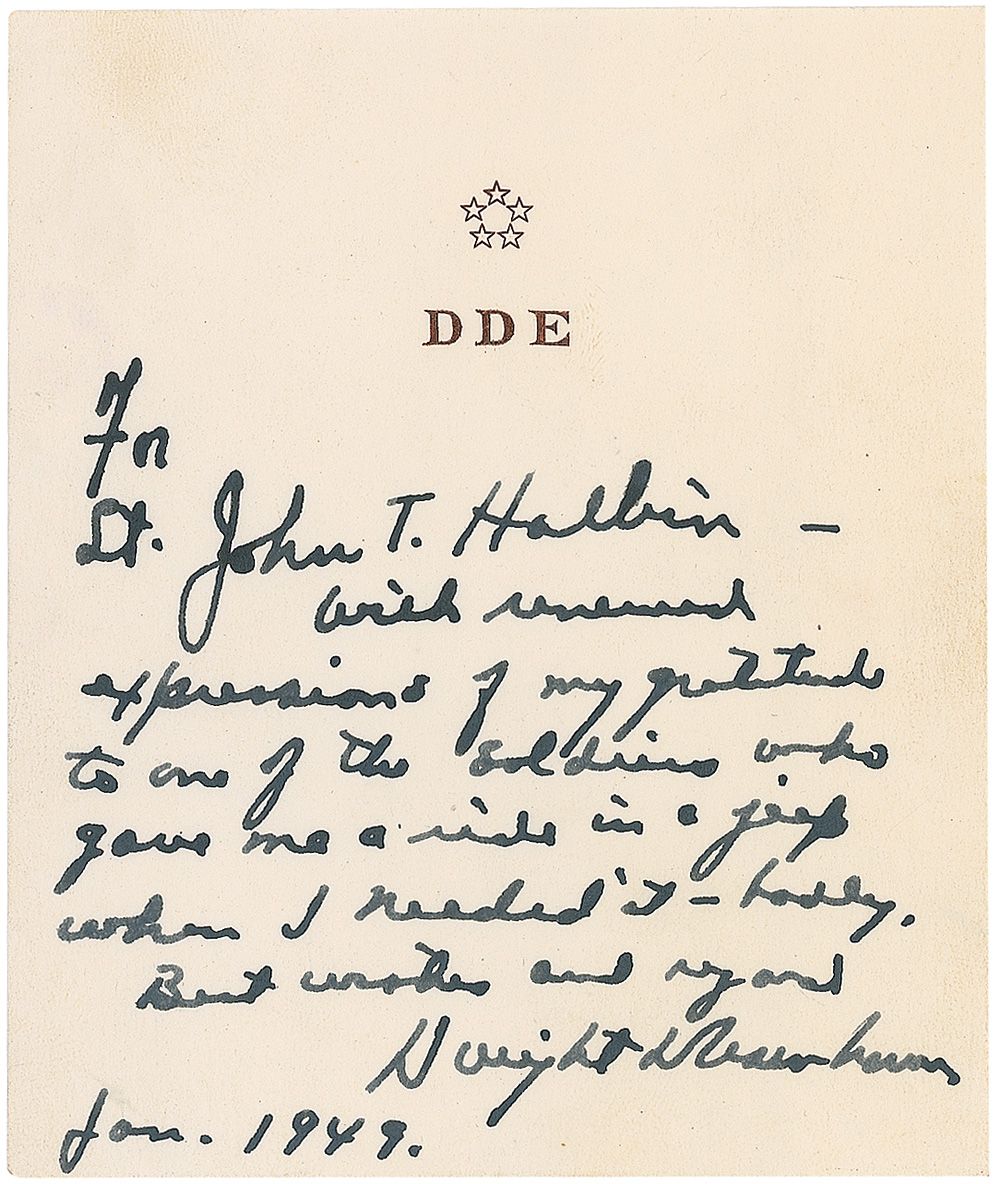 DDE
For
Lt. John T. Halbin –
with renewed
expressions of my gratitude
to one of the soldiers who
gave me a ride in a jeep
when I needed it – badly.
Best wishes and regard
Dwight D Eisenhower
Jan. 1949.